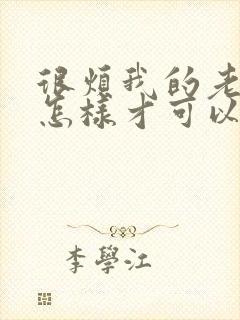 很煩我的老
怎樣才可以
李學江